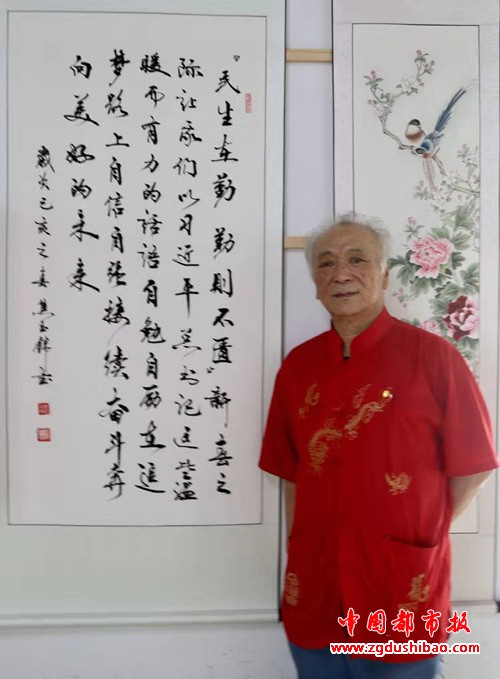 “民生在勤 勤则不匮”新春之
际让我们以习近平总书记这些温
暖而有力的话语自勉自励在追
梦路上自信自强接续奋斗奔
向美好的未来
岁次己亥之春
中国都市报
www.zgdushibao.com